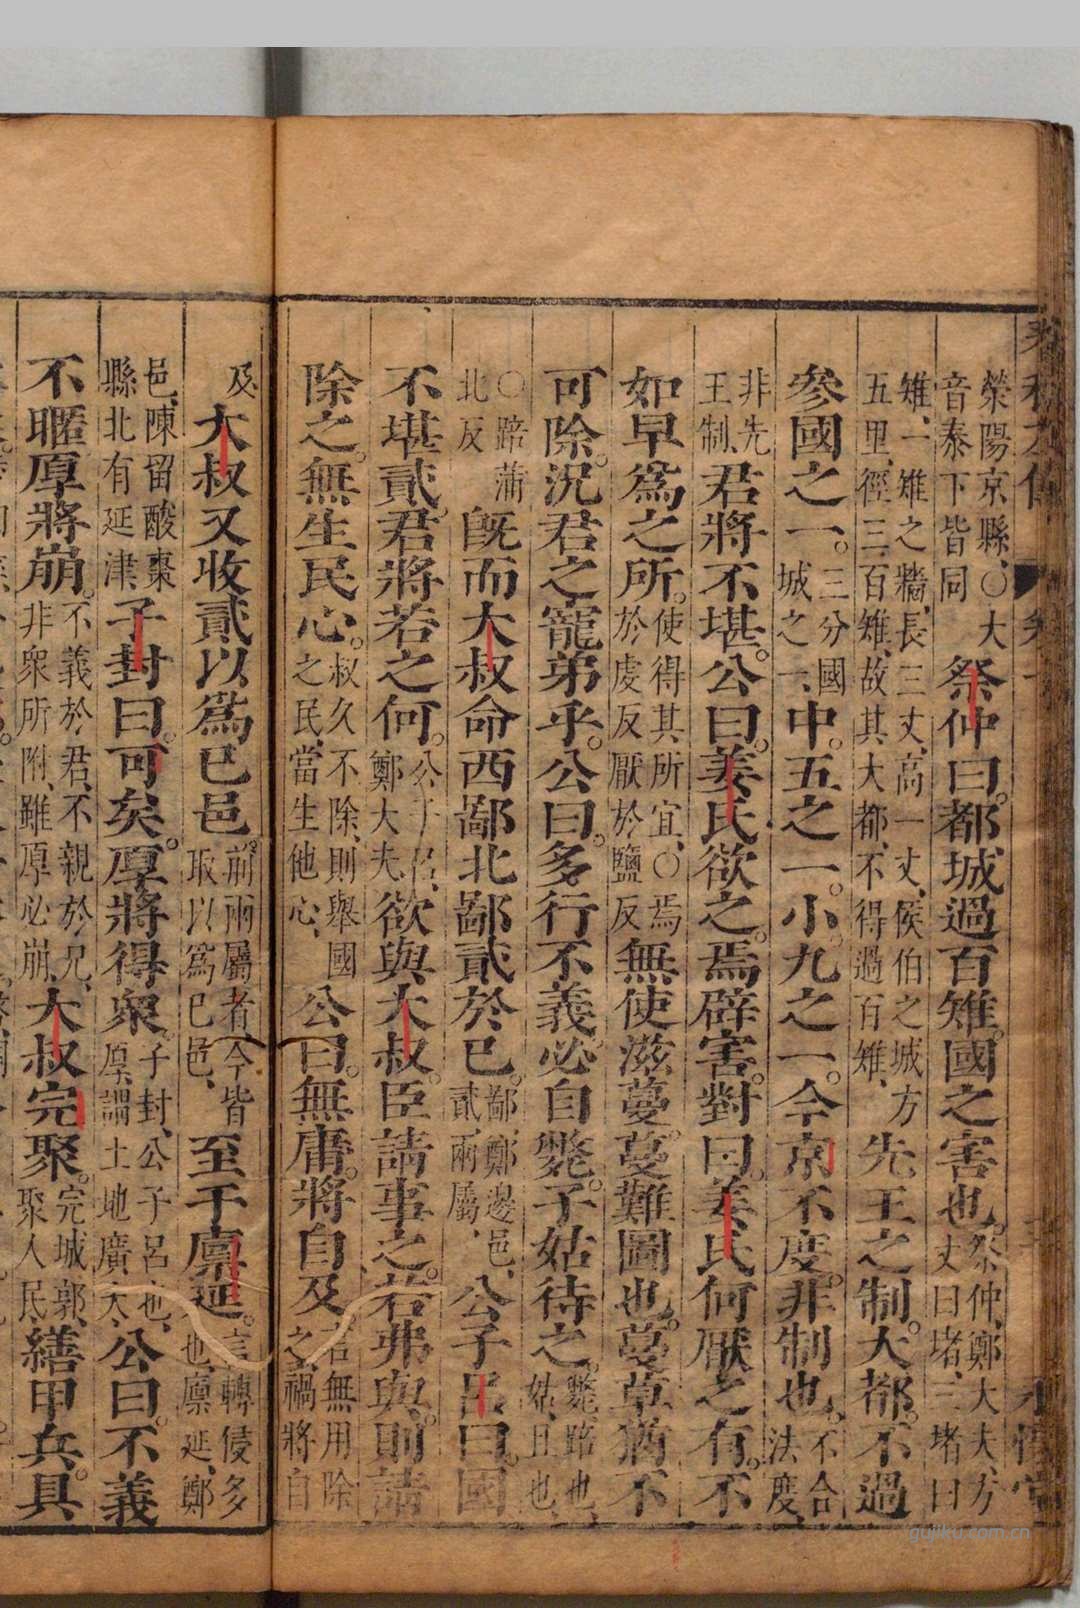 滎陽京縣、○大
音泰下皆同
祭仲曰。都城過百雉。國之害也。
祭仲、鄭大夫、方
丈曰堵、三堵曰
雉、一雉之牆、長三丈、高一丈、侯伯之城方
五里、徑三百雉、故其大都、不得過百雉、
先王之制。大都。不過
參國之一。
三分國
城之一、
中。五之一。小。九之一。今京不度。非制也。
不合
法度
非先
王制、
君將不堪。公曰。姜氏欲之。焉辟害。對曰。姜氏何厭之有。不
如早爲之所。
使得其所宜、○焉
於虔反厭於鹽反
無使滋蔓。蔓難圖也。蔓草猶不
可除。況君之寵弟乎。公曰。多行不義。必自斃。子姑待之。
斃、踣也、
姑、且也、
○踣蒲
北反
旣而大叔命西鄙北鄙貳於己。
鄙、鄭邊邑、
貳、兩屬、
公子呂曰。國
不堪貳。君將若之何。
公子呂、
鄭大夫
欲與大叔。臣請事之。若弗與。則請
除之。無生民心。
叔久不除、則舉國
之民、當生他心、
公曰。無庸。將自及。
言無用除
之禍將自
及
大叔又收貳以爲己邑。
前兩屬者、今皆
取以爲己邑、
至于廩延。
言轉侵多
也、廩延、鄭
邑、陳留酸棗
縣北有延津、
子封曰。可矣。厚將得衆。
子封、公子呂也、
厚、謂土地廣大、
公曰。不義
不暱。厚將崩。
不義於君、不親於兄、
非衆所附、雖厚必崩、
大叔完聚。
完城郭、
聚人民、
繕甲兵。具